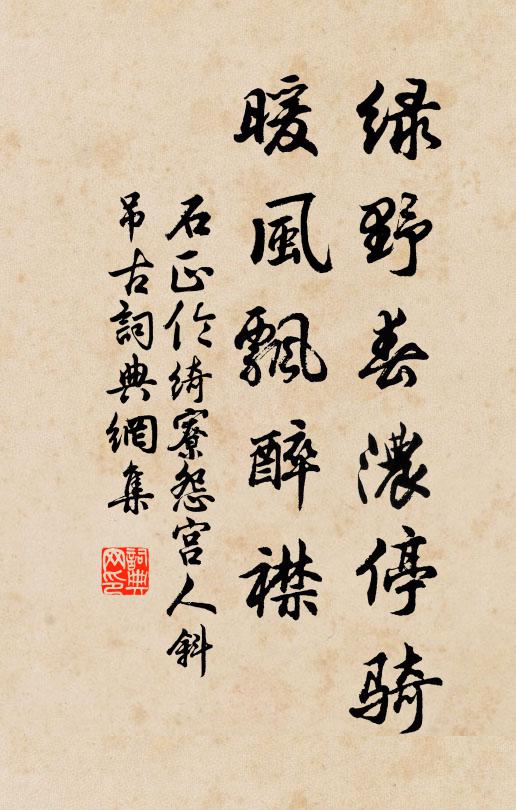 绿野春濃停騎
暖風飄醉襟
石正伦绮寮怨宫人斜
吊古詞典網集
詞典
网印